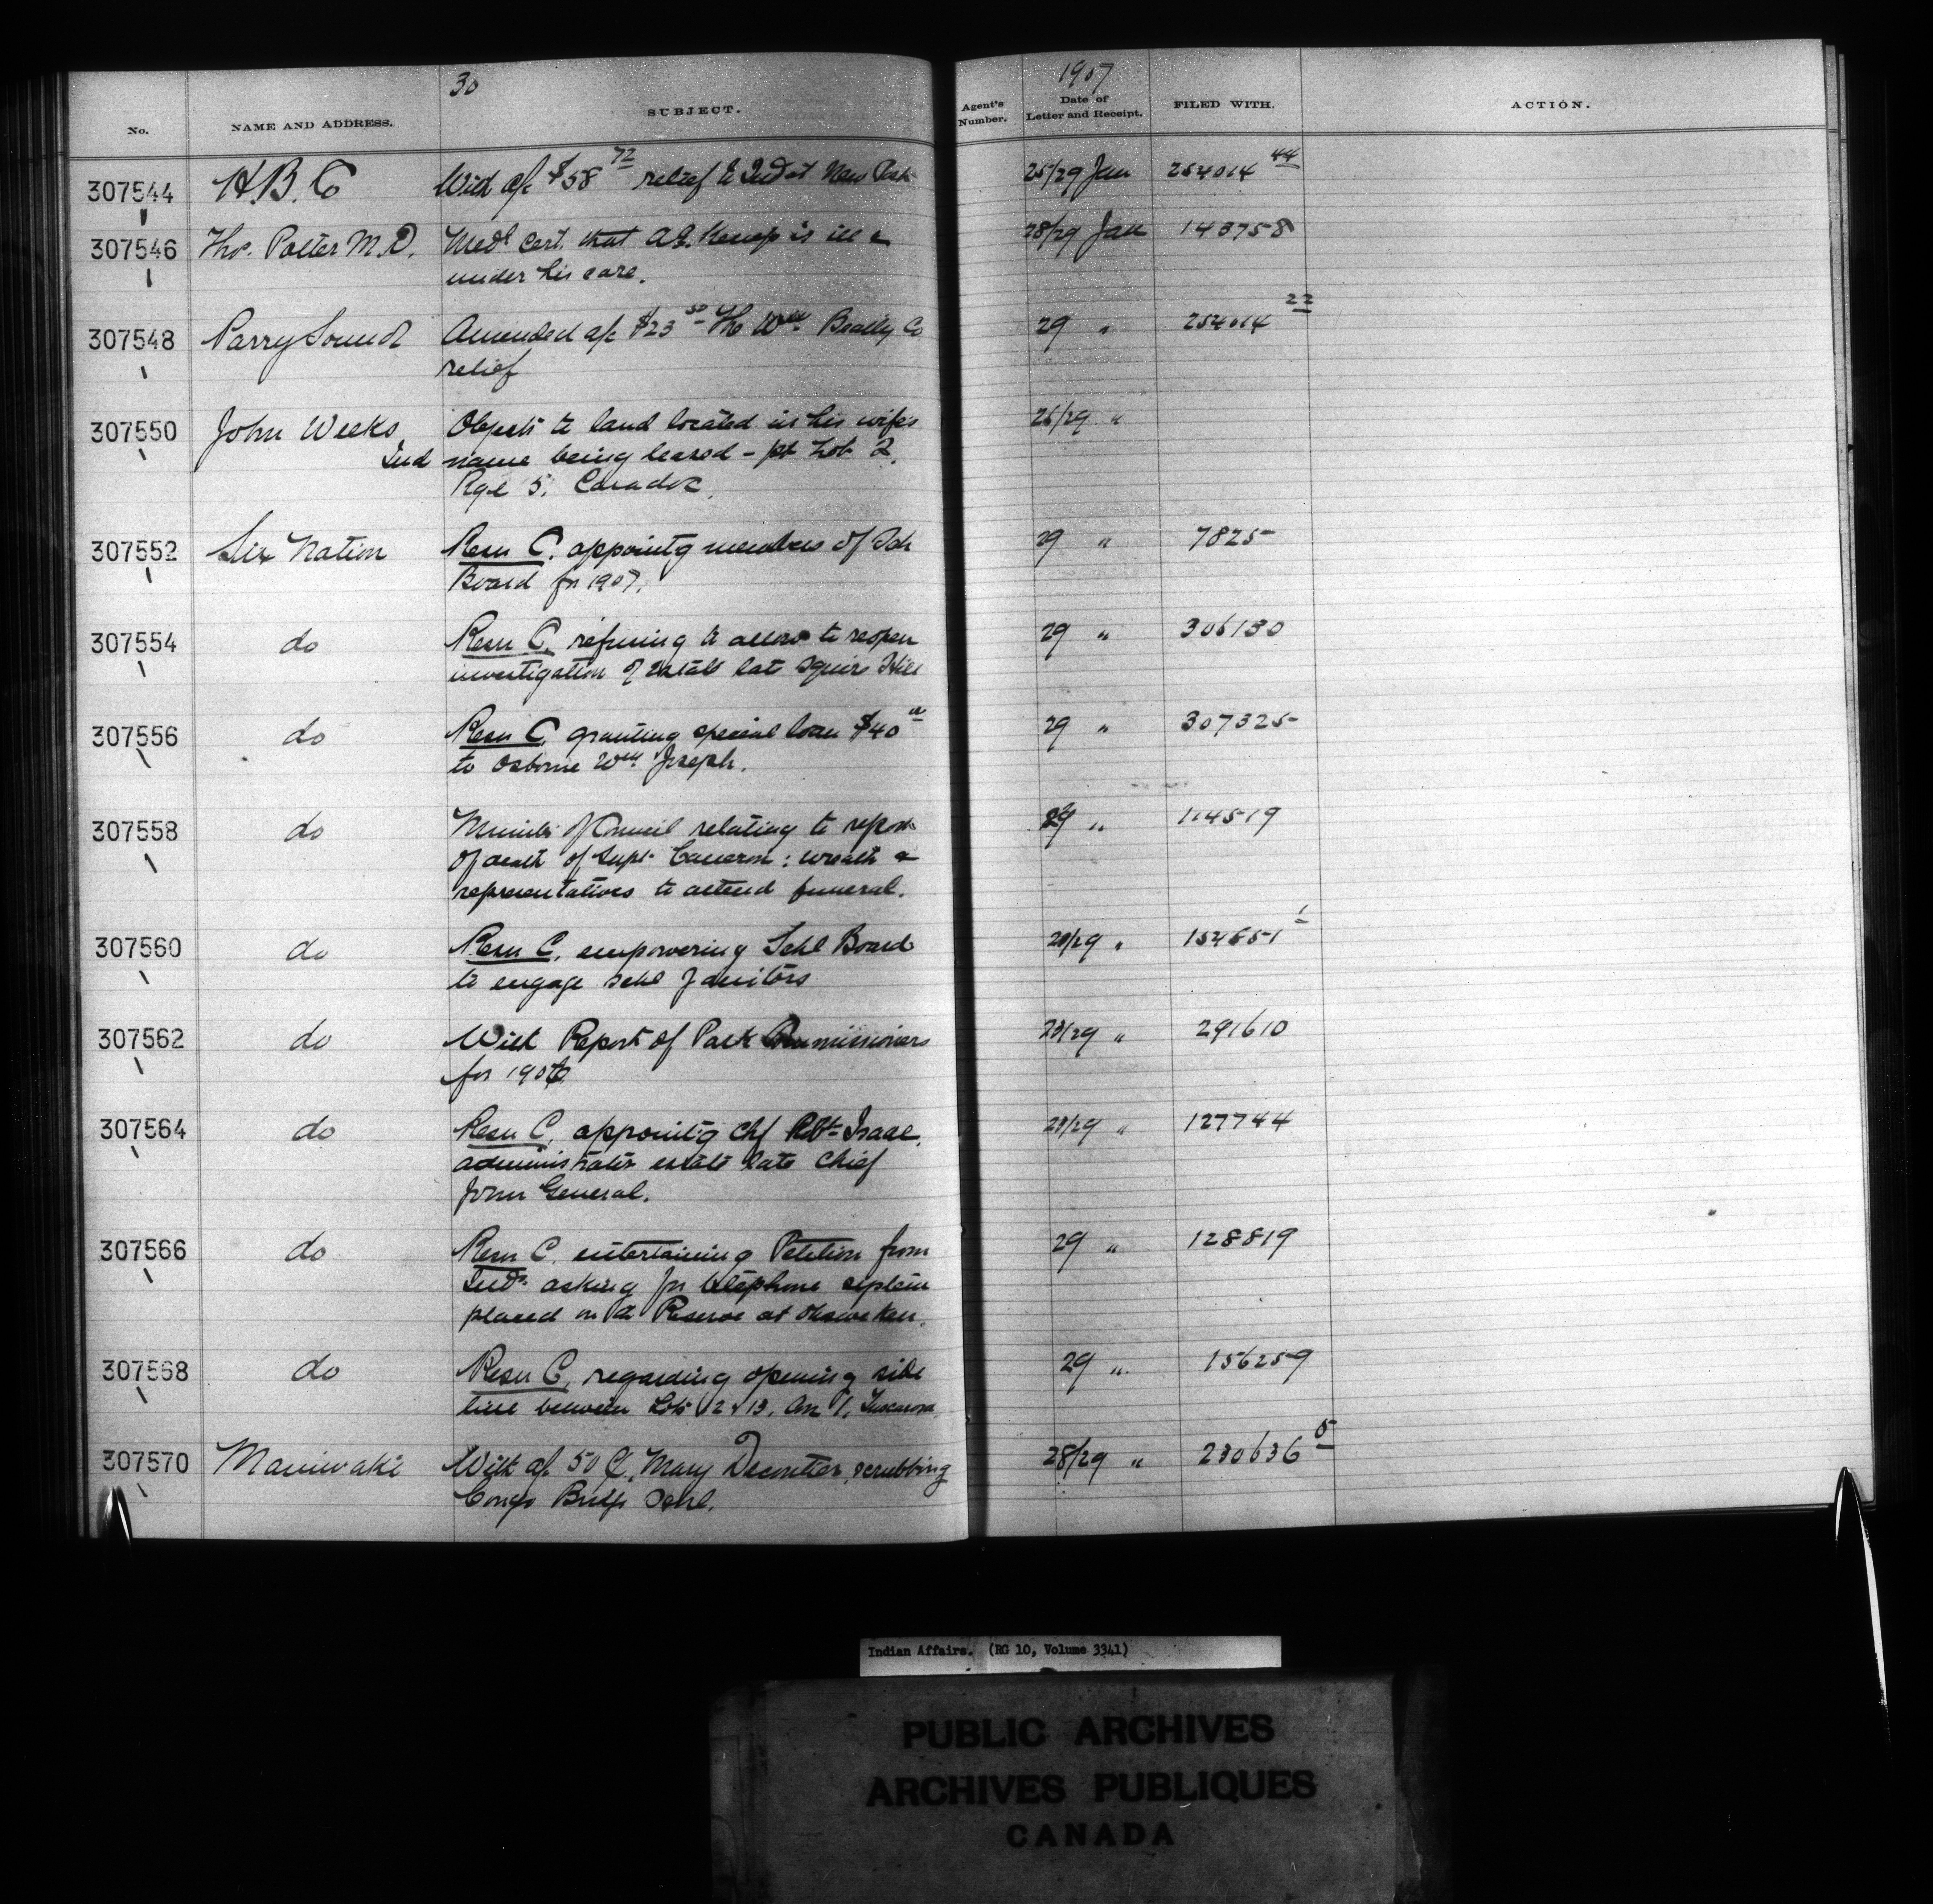 30
1907
No.
NAME AND ADDRESS.
SUBJECT.
Agent's Number.
Date of Letter and Receipt.
FILED WITH.
ACTION.
307544 H.B.C With a/c $58 72 relief to Ind at New Post 25/29 Jan 254014 44
307546 Thos. Potter M.D. Medl Cert. that A.E. Kemp is ill & 28/29 Jan 143758
under his care.
307548 Parry Sound Amended a/c $23 50 The Wm Beatty Co 29 " 254014 22
relief
307550 John Weeks, Objects to land located in his wife's 26/29 "
Ind name being leased - pt Lot 2,
Rge 5, Caradoc.
307552 Six Nation Resn C. appointg members of Sch 29 " 7825
Board for 1907.
307554 do Resn C. refusing to allow to reopen 29 " 306130
investigation of estate late Squire Hill
307556 do Resn C. granting special loan $40 29 " 307325
to Osborne Wm Joseph.
307558 do Minute of Council relating to report 29 " 114519
of death of Supt. Cameron: wreath &
representatives to attend funeral.
307560 do Resn C. empowering Schl Board 29 " 154651 1
to engage schl janitors
307562 do With Report of Park Commissioners /29 " 291610
for 1906
307564 do Resn C. appointg Chf Robt Isaac, /29 " 127744
administrator estate late Chief
John General.
307566 do Resn C. entertaining Petition from 29 " 128819
Inds. asking for telephone system
placed on the Reserve at Ohsweken.
307568 do Resn C. regarding opening side 29 " 156259
line between Lots 12 & 13, Con 1, Tuscarora
307570 Maniwaki With a/c 50 C. Mary Decontier, scrubbing 28/29 " 230636 5
Congo Bridge Schl.
Indian Affairs. (RG 10, Volume 3341)
PUBLIC ARCHIVES
ARCHIVES PUBLIQUES
CANADA